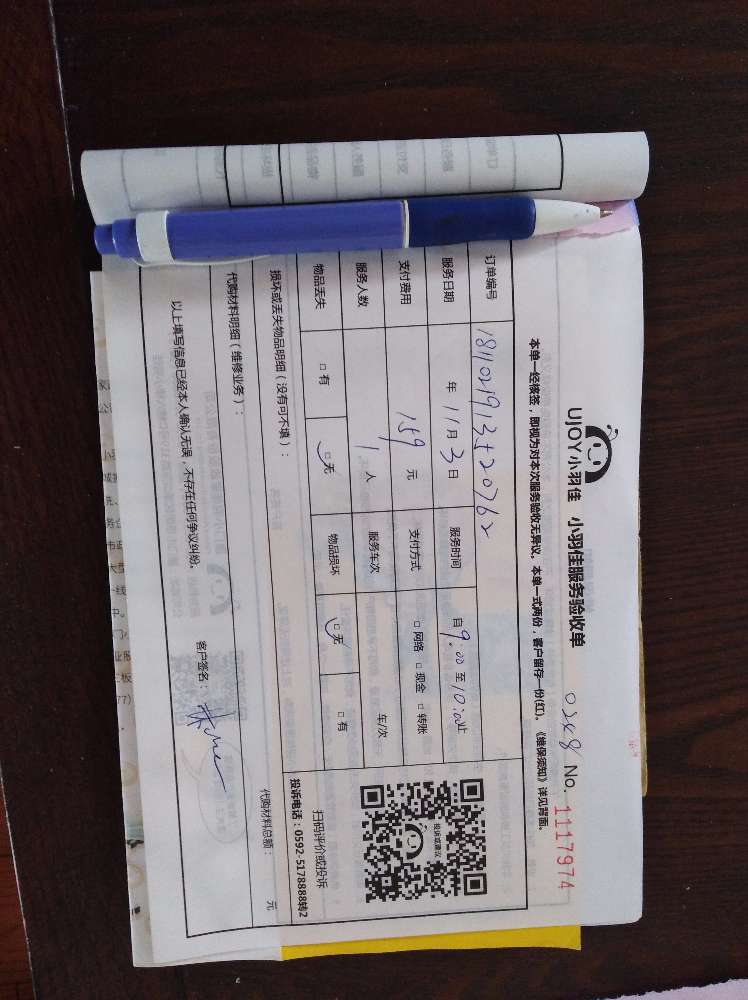 UJOY小羽佳 小羽佳服务验收单 0248 No. 1117974
本单一经核签，即视为对本次服务验收无异议。本单一式两份，客户留存一份(红)。《维保须知》详见背面。
订单编号 1811021913520762
服务日期 年 11 月 3 日 服务时间 自 9:00 至 10:00 止
支付费用 159 元 支付方式 □ 网络 □ 现金 □ 转账
服务人数 1 人 服务车次 车/次
物品丢失 □ 有 □ 无 物品损坏 □ 无 □ 有
投诉或建议
扫码评价或投诉
投诉电话：0592-5178888转2
损坏或丢失物品明细（没有可不填）：
代购材料明细（维修业务）： 代购材料总额： 元
以上填写信息已经本人确认无误，不存在任何争议纠纷。
客户签名：